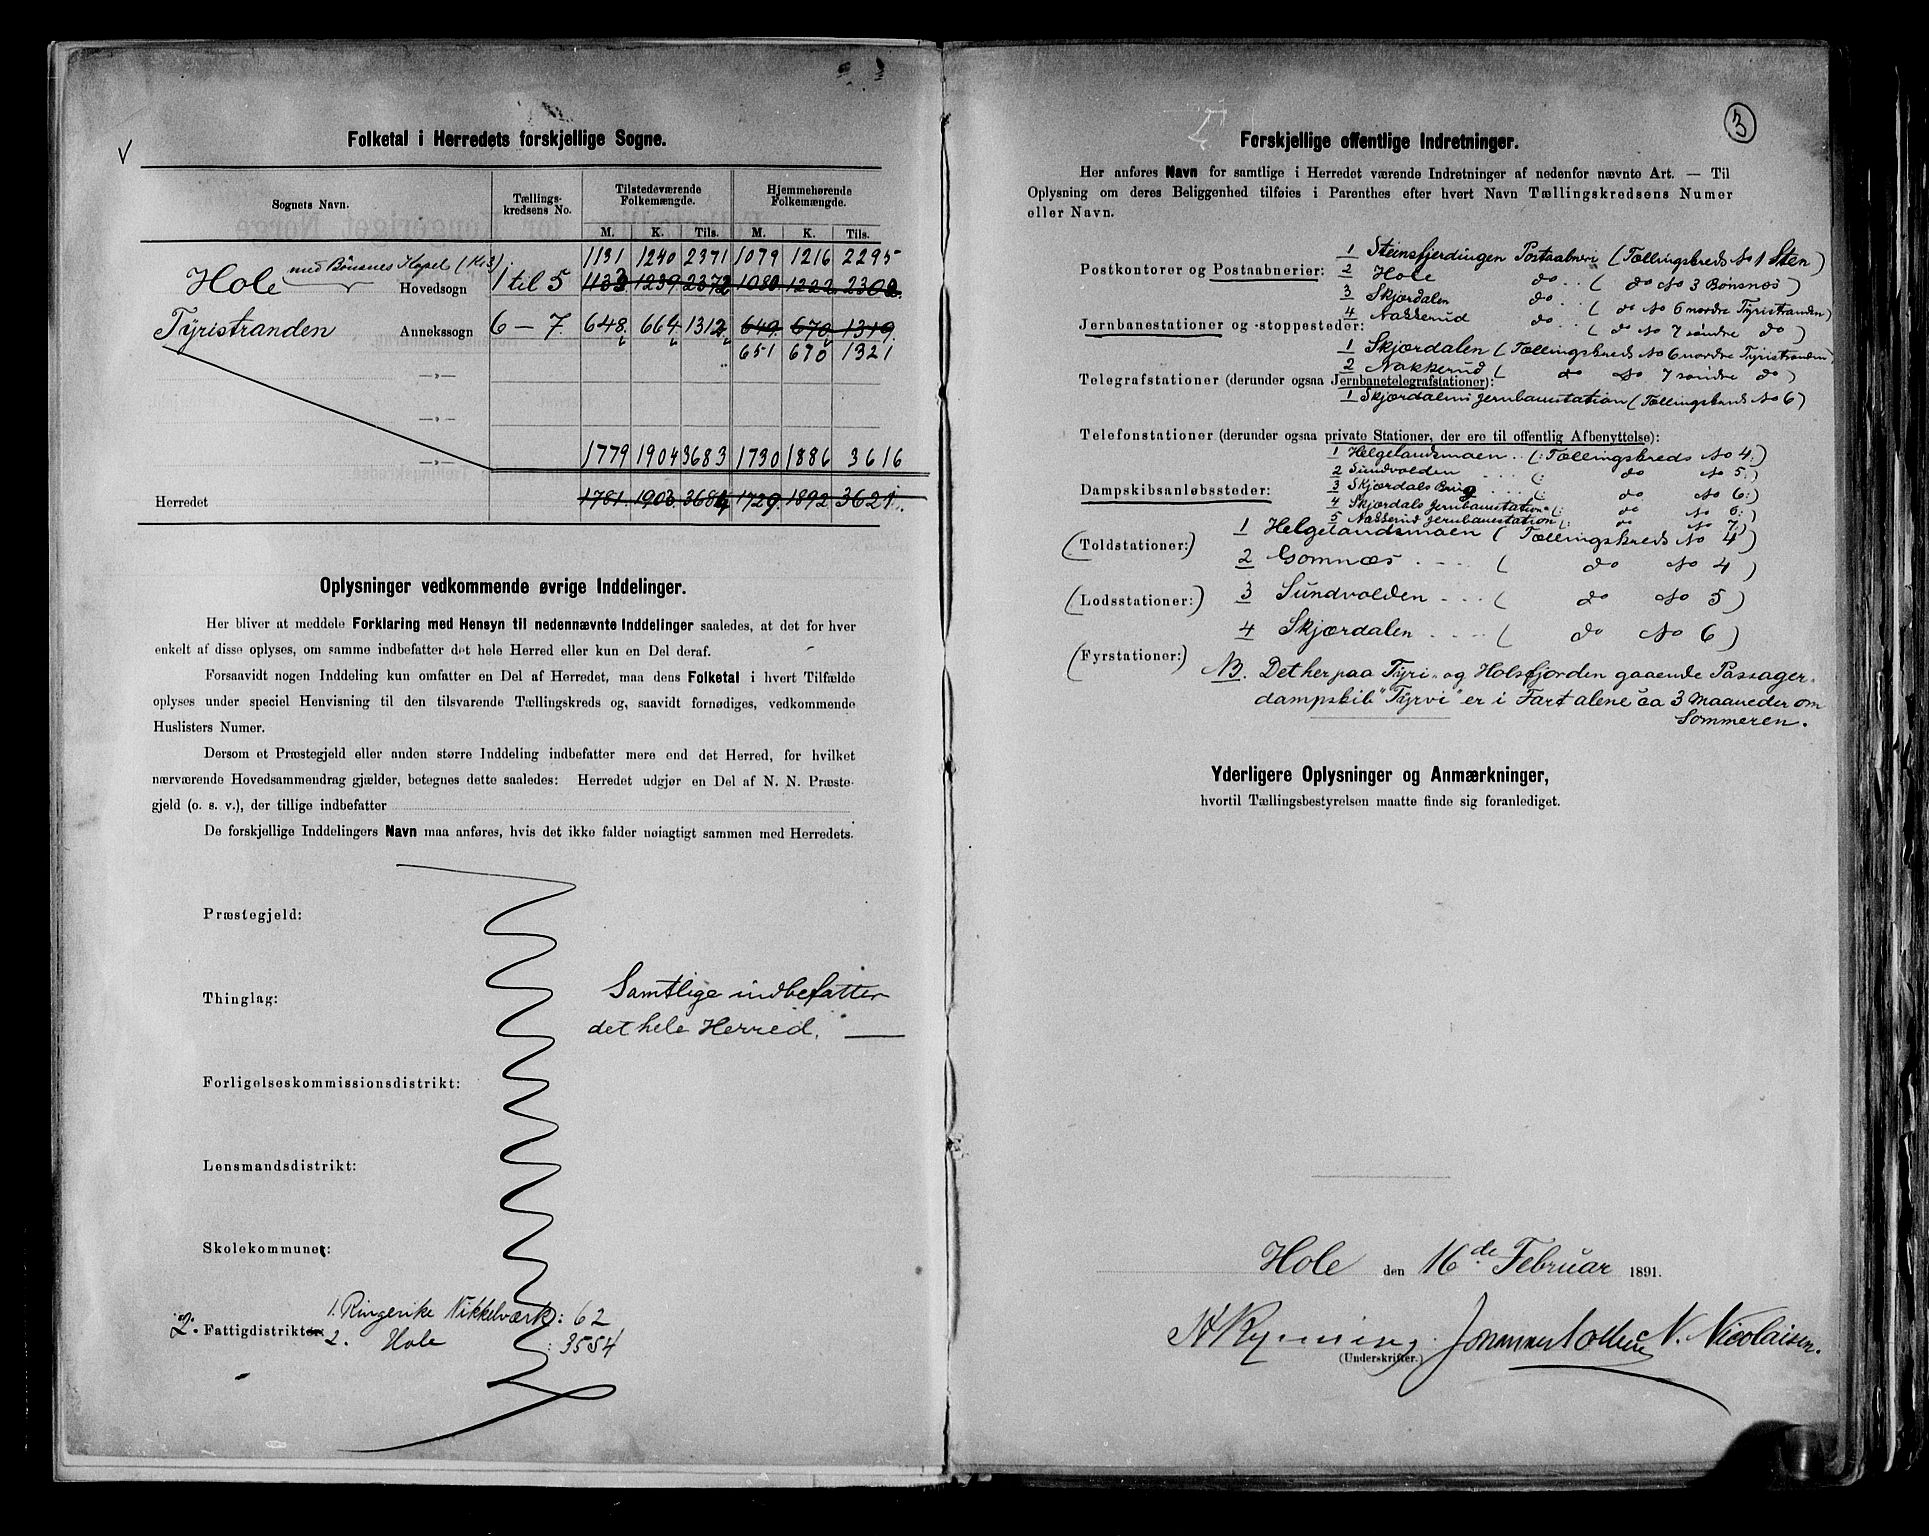 Folketal i Herredets forskjellige Sogne.
Sognets Navn.
Tællings-
kredsens No.
Tilstedeværende
Folkemængde.
Hjemmehørende
Folkemængde.
M. K. Tils. M. K. Tils.
1131 1240 2371 1079 1216 2295
Hole med Bønsnes Kapel (Kr 3) Hovedsogn 1 til 5 1133 1239 2372 1080 1222 2302.
Tyristranden Annekssogn 6 - 7. 648. 664 1312 649. 670 1319.
651 670 1321
—»—
—»—
—»— 1779 1904 3683 1730 1886 3616
Herredet 1781. 1903. 3684 1729. 1892. 3621.
Oplysninger vedkommende øvrige Inddelinger.
Her bliver at meddele Forklaring med Hensyn til nedennævnte Inddelinger saaledes, at det for hver
enkelt af disse oplyses, om samme indbefatter det hele Herred eller kun en Del deraf.
Forsaavidt nogen Inddeling kun omfatter en Del af Herredet, maa dens Folketal i hvert Tilfælde
oplyses under speciel Henvisning til den tilsvarende Tællingskreds og, saavidt fornødiges, vedkommende
Huslisters Numer.
Dersom et Præstegjeld eller anden større Inddeling indbefatter mere end det Herred, for hvilket
nærværende Hovedsammendrag gjælder, betegnes dette saaledes: Herredet udgjør en Del af N. N. Præste-
gjeld (o. s. v.), der tillige indbefatter
De forskjellige Inddelingers Navn maa anføres, hvis det ikke falder nøiagtigt sammen med Herredets.
Præstegjeld:
Thinglag:
Samtlige indbefatter
det hele Herred.
Forligelseskommissionsdistrikt:
Lensmandsdistrikt:
Skolekommune:
1. Ringerike Nikkelværk: 62
2. Fattigdistrikter
2. Hole : 3554
3
Forskjellige offentlige Indretninger.
Her anføres Navn for samtlige i Herredet værende Indretninger af nedenfor nævnte Art. — Til
Oplysning om deres Beliggenhed tilføies i Parenthes efter hvert Navn Tællingskredsens Numer
eller Navn.
1 Steinsfjerdingen Postaabneri (Tællingskreds No 1 Sten)
Postkontorer og Postaabnerier:
2 Hole do .. ( do No 3 Bønsnæs)
3 Skjærdalen do .. ( do No 6 nordre Tyristranden)
4 Nakkerud do ... ( do No 7 søndre do )
Jernbanestationer og -stoppesteder:
1 Skjærdalen (Tællingskreds No 6 nordre Tyristranden)
2 Nakkerud ( do No 7 søndre do )
Telegrafstationer (derunder ogsaa Jernbanetelegrafstationer):
1 Skjærdalens Jernbanestation (Tællingskreds No 6)
Telefonstationer (derunder ogsaa private Stationer, der ere til offentlig Afbenyttelse):
1 Helgelandsmoen .. (: Tællingskreds No 4:)
2 Sundvolden (: do No 5:)
3 Skjærdals Brug (: do No 6:)
4 Skjærdals Jernbanestation (: do No 6:)
5 Nakkerud Jernbanestation (: do No 7)
Dampskibsanløbssteder:
1 Helgelandsmoen ( Tællingskreds No 4)
(Toldstationer:)
2 Gomnæs . . . . ( do No 4)
3 Sundvolden . . . ( do No 5)
(Lodsstationer:)
4 Skjærdalen . . . . ( do No 6)
(Fyrstationer:)
NB. Det her paa Tyri- og Holsfjorden gaaende Passager-
dampskib "Tyrvi" er i Fart alene ca 3 Maaneder om
Sommeren.
Yderligere Oplysninger og Anmærkninger,
hvortil Tællingsbestyrelsen maatte finde sig foranlediget.
Hole den 16de Februar 1891.
N. Nicolaisen.
(Underskrifter.)